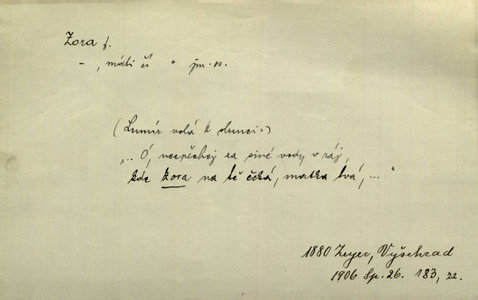 Zora f.
- „máti
(Lumír volá k slunci:)
„.. Ó, nespěchej za siné vody v ráj,
kde zora na tě čeká, matka tvá, ... "
1880 Zeyer, Vyšehrad
1906 Sp. 26. 183, zz.